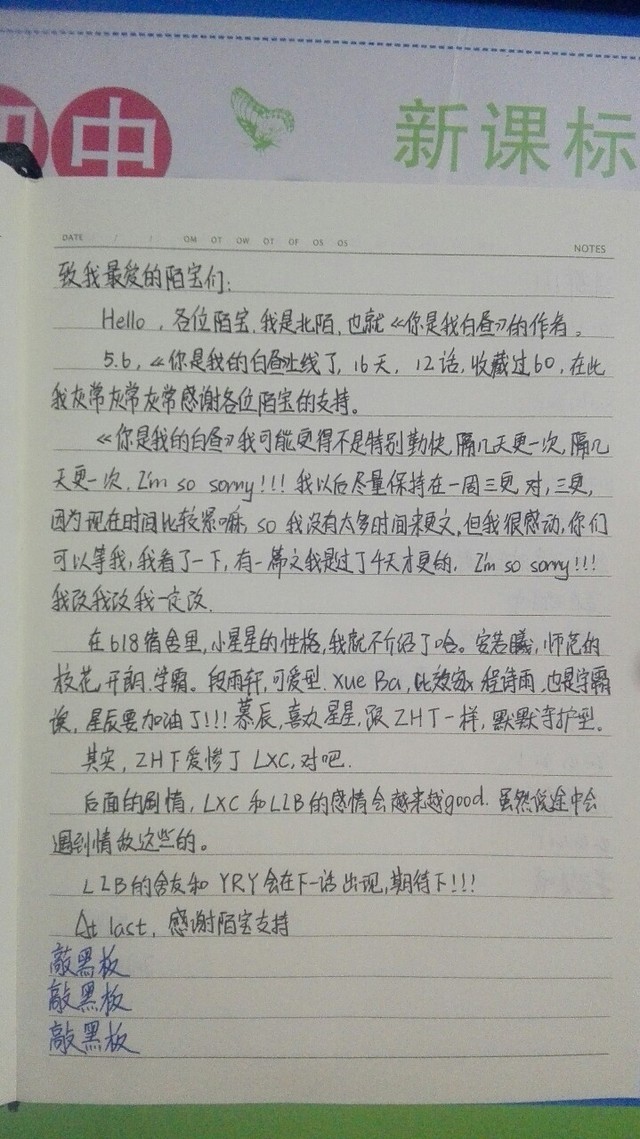 初中
新课标
DATE / / OM OT OW OT OF OS OS
NOTES
致我最爱的陌宝们：
Hello，各位陌宝，我是北陌，也就《你是我白昼》的作者。
5.6，《你是我的白昼》上线了，16天，12话，收藏过60，在此
我灰常灰常灰常感谢各位陌宝的支持。
《你是我的白昼》我可能更得不是特别勤快，隔几天更一次，隔几
天更一次，I'm so sorry!!! 我以后尽量保持在一周三更，对，三更，
因为现在时间比较紧嘛，so 我没有太多时间来更文，但我很感动，你们
可以等我，我看了一下，有一篇文我是过了4天才更的，I'm so sorry!!!
我改我改我一定改.
在618宿舍里，小星星的性格，我就不介绍了哈。安若曦，师范的
校花，开朗，学霸。段雨轩，可爱型，Xue Ba，程诗雨，也是学霸
诶，星辰要加油了!!! 慕辰，喜欢星星，跟ZHT一样，默默守护型。
其实，ZHT爱惨了LXC，对吧.
后面的剧情，LXC和LZB的感情会越来越good. 虽然说途中会
遇到情敌这些的。
LZB的舍友和YRY会在下一话出现，期待下!!!
At last，感谢陌宝支持
敲黑板
敲黑板
敲黑板